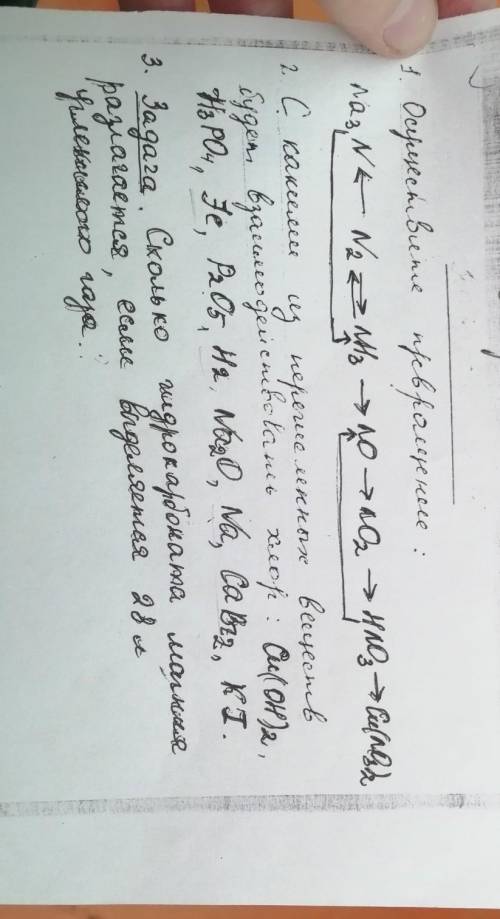 1. Осуществите превращение:
Na3N ← N2 ⇄ NH3 → NO → NO2 → HNO3 → Cu(NO3)2
2. С какими из перечисленных веществ
будет взаимодействовать хлор: Cu(OH)2,
H3PO4, Fe, P2O5, H2, Na2O, Na, CaBr2, KI.
3. Задача. Сколько гидрокарбоната магния
разлагается, если выделяется 28 л
углекислого газа.